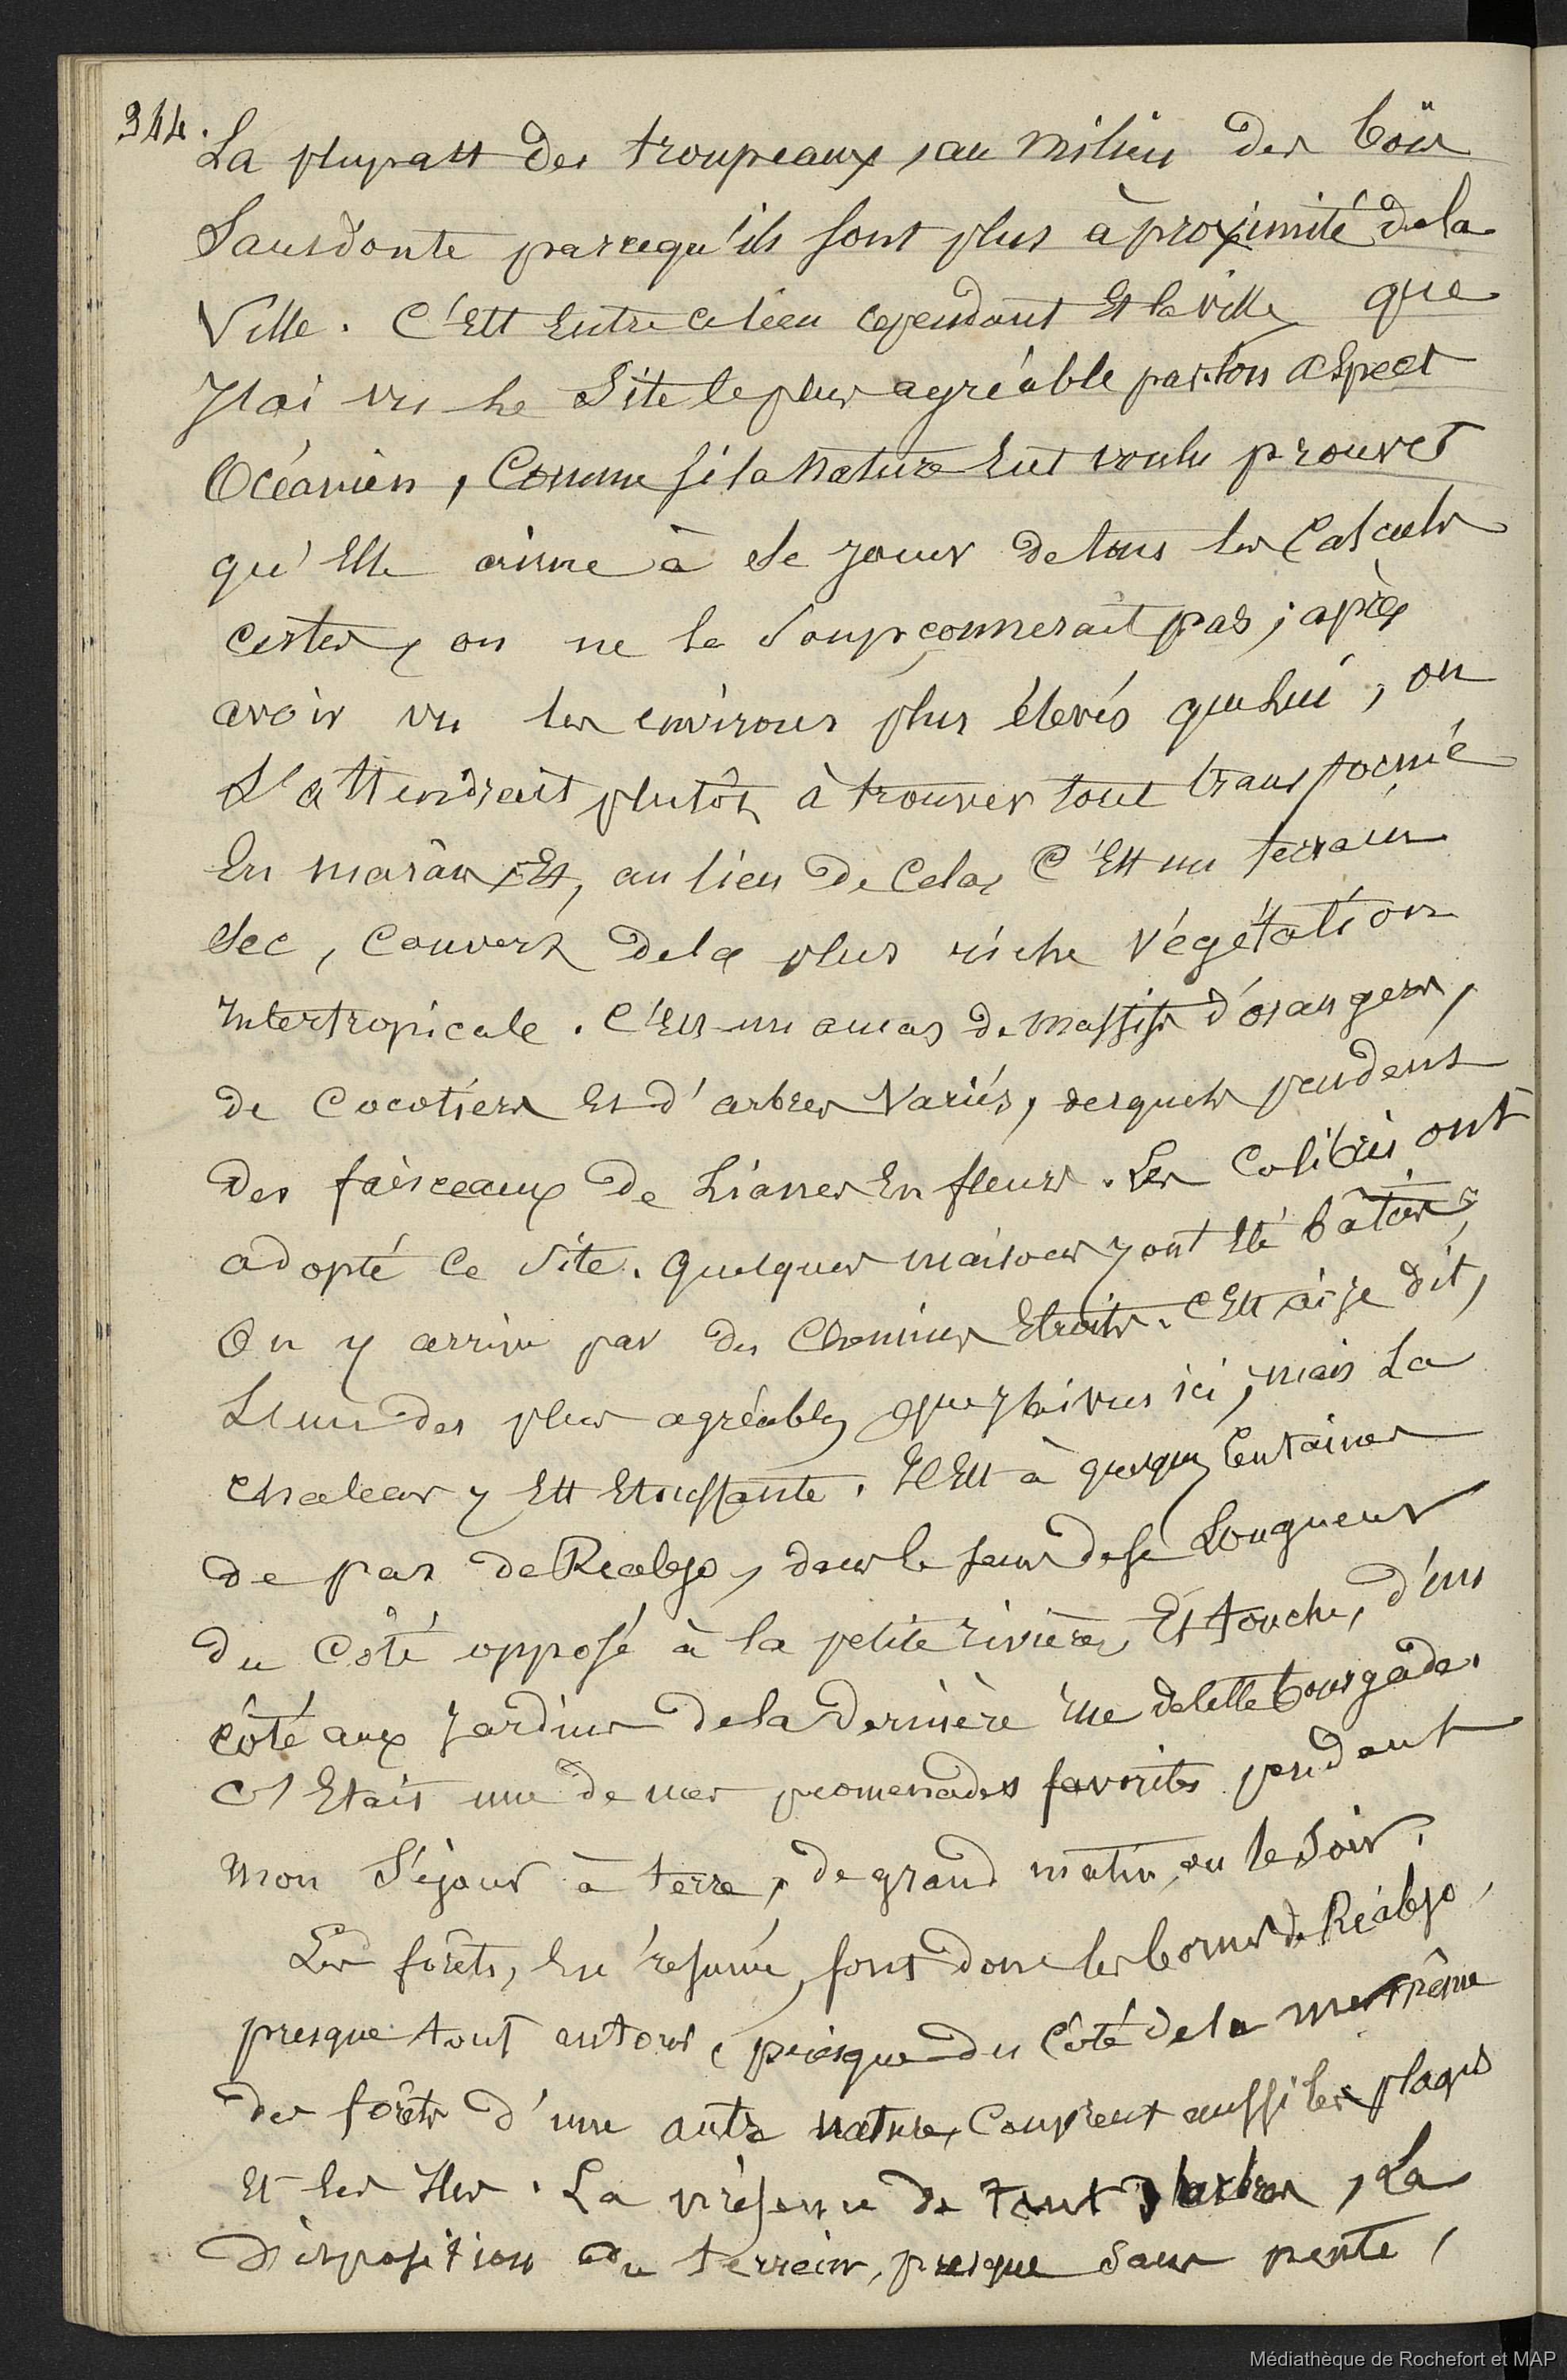 344.
La plupart des troupeaux, au milieu des bois
Sans doute parcequ'ils sont plus à proximité de la
Ville. C'Est Entre ce lieu cependant Et la ville que
J'ai vu le Site le plus agréable par son aspect
Océanien, Comme si la Nature Eut voulu prouver
qu'Elle aime à se jouer de tous les Calculs
certes, on ne le Soupçonnerait pas ; après
avoir vu les environs plus élevés que lui, on
S'attendrait plutôt à trouver tout transformé
En marais Et, au lieu de Cela, C'Est un terrain
Sec, Couvert de la plus riche Végétation
Intertropicale. C'Est un amas de massifs d'orangers,
de Cocotiers Et d'arbres Variés, desquels pendent
des faisceaux de Lianes En fleurs. Les Colibris ont
adopté ce Site. Quelques maisons y ont Eté bâties ;
On y arrive par des Chemins Etroits. C'Est ai-je dit,
L'un des plus agréables que j'ai vus ici ; mais La
Chaleur y Est Etouffante. Il Est à quelques Centaines
de pas de Realejo, dans le sens de sa Longueur
du Côté opposé à la petite rivière, Et touche, d'un
côté aux Jardins de la Dernière rue de cette bourgade.
C'Etait une de mes promenades favorites pendant
Mon Séjour à terre, de grand matin, ou le Soir.
Les forêts, En résumé, sont donc les bornes de Réalejo,
presque tout autour, puisque du Côté de la mer même
des forêts d'une autre nature, Couvrent aussi les plages
Et les Iles. La présence de tant d'arbres, La
Disposition du terrain, presque Sans pente,
Médiathèque de Rochefort et MAP